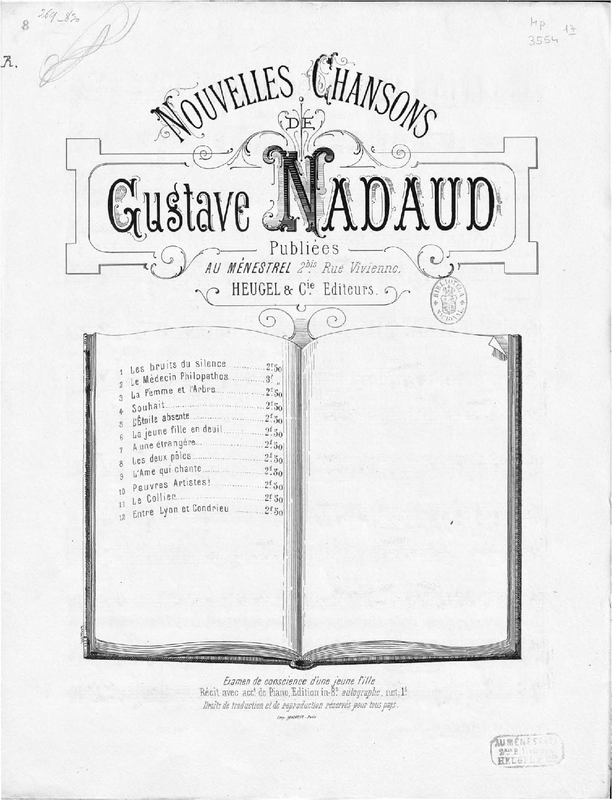 8
369_83
Mp
3554 17
R.
NOUVELLES CHANSONS
DE
GUSTAVE NADAUD
Publiées
AU MÉNESTREL 2bis Rue Vivienne.
HEUGEL & Cie Editeurs.
1 Les bruits du silence 2f50
2 Le Médecin Philopathos 3f
3 La Femme et l'Arbre 2f50
4 Souhait 2f50
5 L'Étoile absente 2f50
6 La jeune fille en deuil 2f50
7 A une étrangère 2f50
8 Les deux pôles 2f50
9 L'Ame qui chante 2f50
10 Pauvres Artistes! 2f50
11 Le Collier 2f50
12 Entre Lyon et Condrieu 2f50
Examen de conscience d'une jeune fille
Récit avec acct de Piano, Edition in-8º autographe, net, 1f
Droits de traduction et de reproduction réservés pour tous pays.
AU MÉNESTREL
HEUGEL